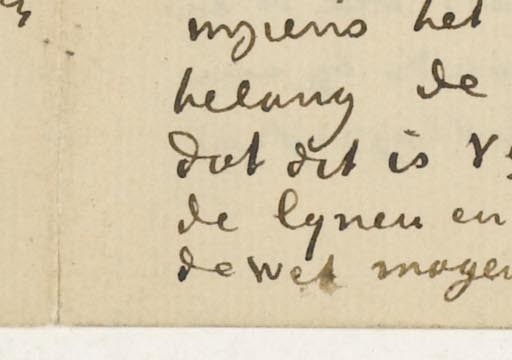 mijns het
belang de
dat dit is
de lynen en
de wet mogen